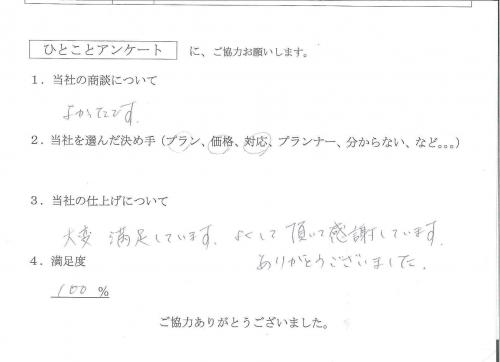 ひとことアンケート に、ご協力お願いします。
1．当社の商談について
よかったです．
2．当社を選んだ決め手（プラン、価格、対応、プランナー、分からない、など。。。）
3．当社の仕上げについて
大変 満足しています．よくして頂いて感謝しています．
ありがとうございました．
4．満足度
100 %
ご協力ありがとうございました。